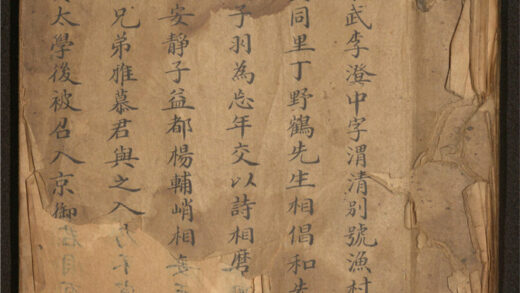 武李澄中字渭清別號漁村
同里丁野鶴先生相倡和
子羽為忘年交以詩相磨
安靜子益都楊輔峭相
兄弟雅慕君與之入
太學後被召入京御